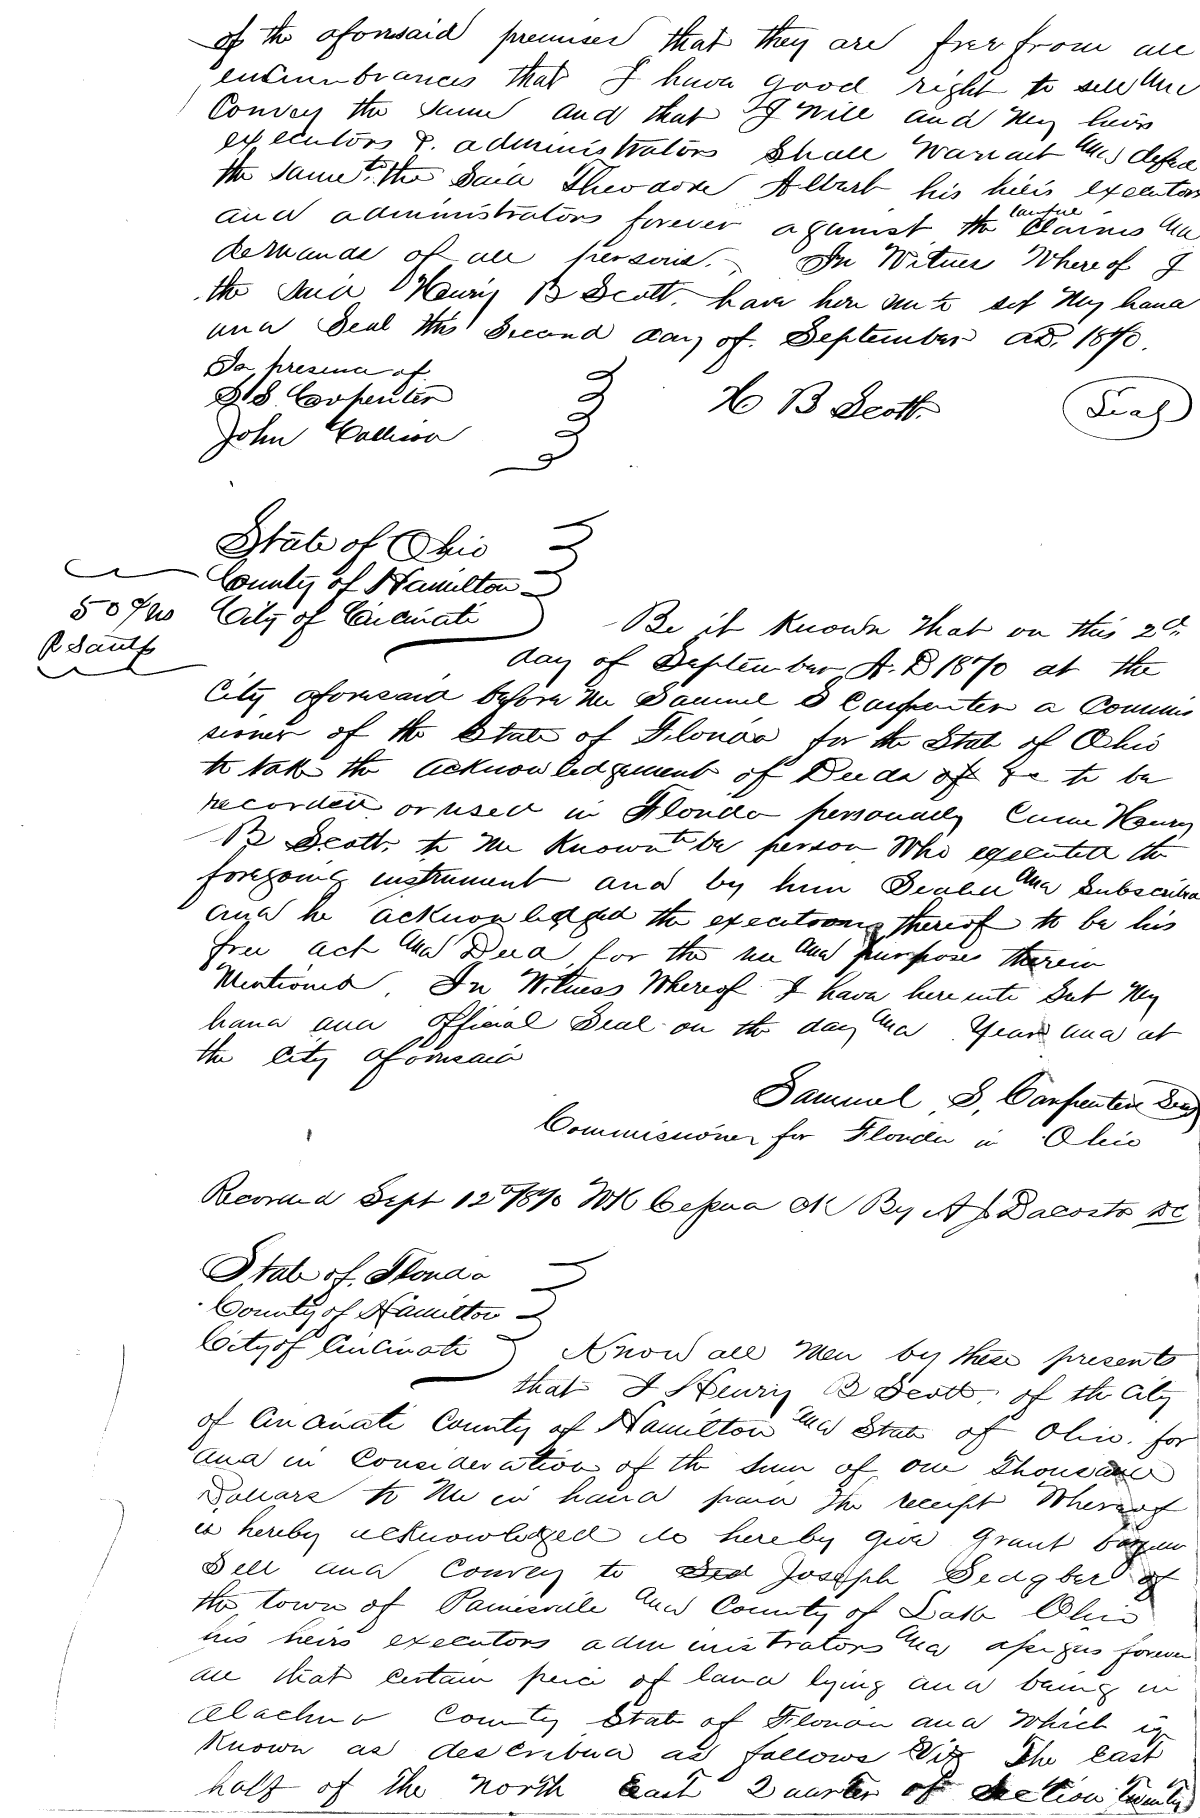 of the aforesaid premises that they are free from all
encumbrances that I have good right to sell and
Convey the same and that I will and my heirs
executors & administrators shall warrant and defend
the same to the said Theodore Albert his heirs executors
and administrators forever against the lawful claims and
demands of all persons. In Witness Whereof I
the said Henry B Scott. have here unto set my hand
and Seal this Second day of September AD. 1870.
In presence of
S S Carpenter
John Collison
H B Scott. Seal
State of Ohio
County of Hamilton
City of Cincinati
50
Be it Known that on this 2d
day of September A.D 1870 at the
City aforesaid before me Samuel S Carpenter a Commis
sioner of the State of Florida for the State of Ohio
to take the acknowledgement of Deeds &c to be
recorded or used in Florida personally Came Henry
B Scott. to me Known to be person Who executed the
foregoing instrument and by him Sealed and Subscribed
and he acknowledged the execution thereof to be his
free act and Deed for the use and purposes therein
Mentioned. In Witness Whereof I have here unto Set My
hand and official Seal on the day and Year and at
the City aforesaid
Samuel S. Carpenter Seal
Commissioner for Florida in Ohio
Recorded Sept 12th 1870 By A J Dacosta DC
State of Florida
County of Hamilton
City of Cincinati
Know all Men by these presents
that I Henry B Scott. of the City
of Cincinati County of Hamilton and State of Ohio. for
and in Consideration of the sum of one Thousand
Dollars to Me in hand paid the receipt Whereof
is hereby acknowledged do hereby give grant bargain
Sell and Convey to Sed Joseph Sedgber of
the town of Painesville and County of Lake Ohio
his heirs executors administrators and assigns forever
all that certain peice of land lying and being in
Alachua County State of Florida and Which is
Known as described as follows Viz The East
half of the North East Quarter of Section Twenty